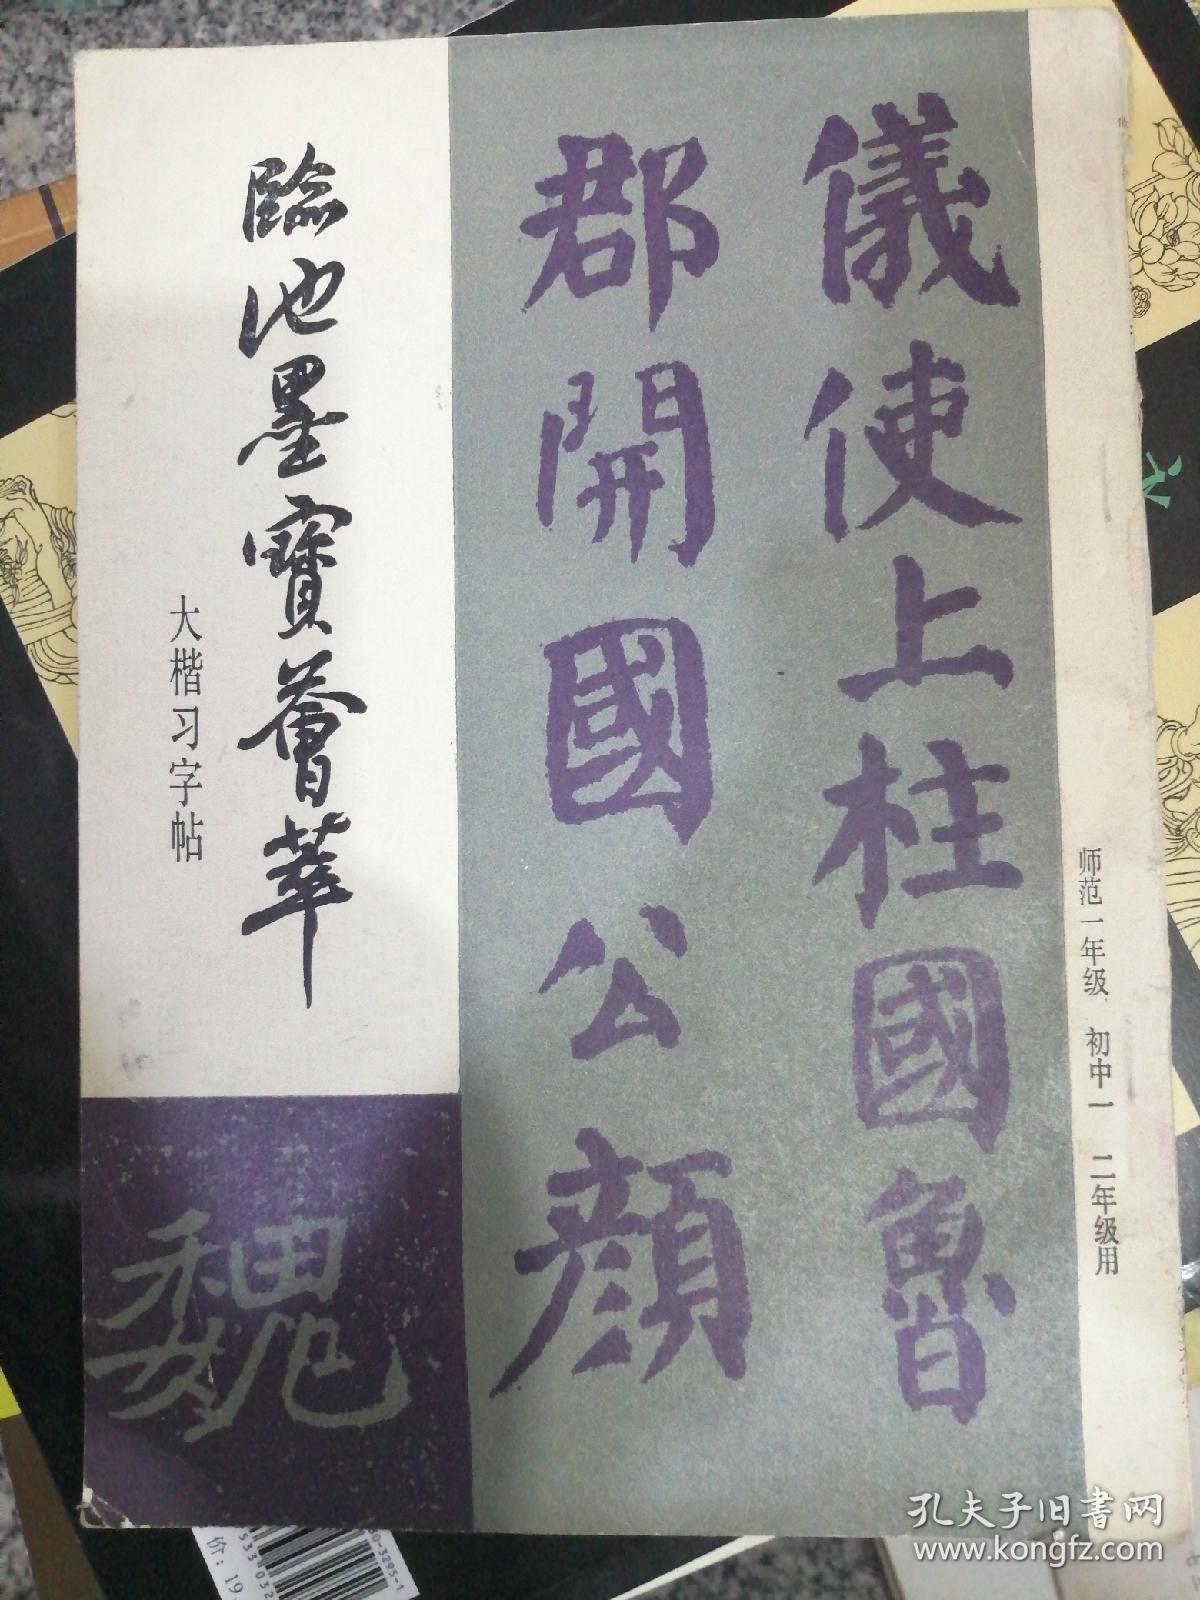 師范一年级 初中一 二年级用
儀使上柱國魯
郡開國公顔
臨池墨寶薈萃
大楷习字帖
魏
孔夫子旧書网
www.kongfz.com
价：19.